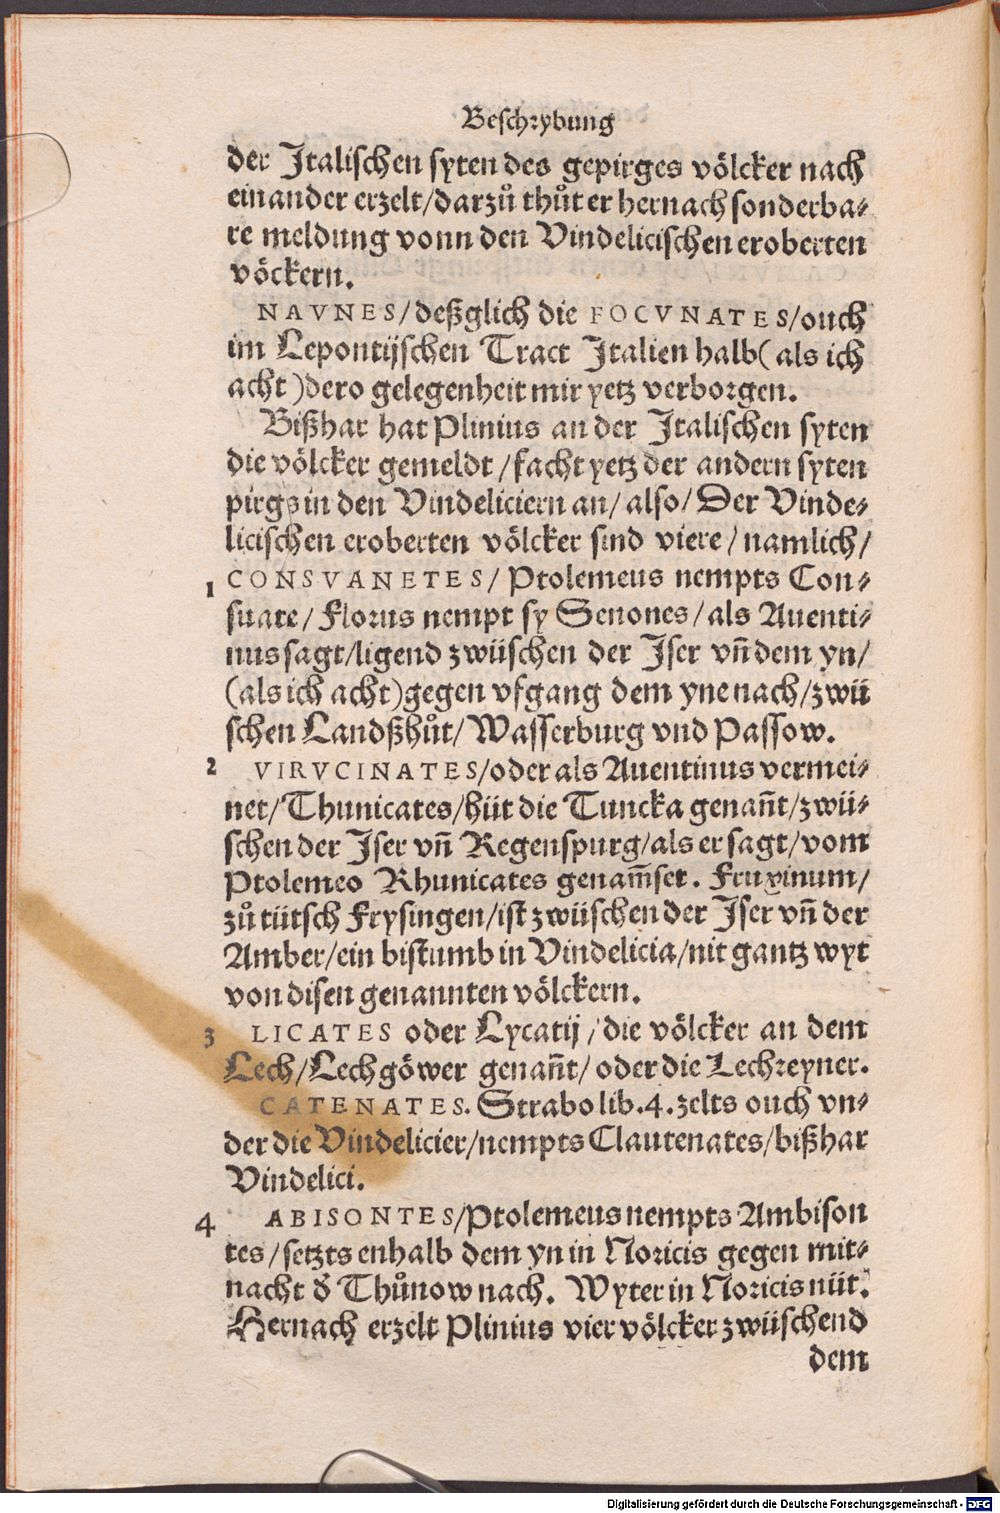 Beschrybung
der Italischen syten des gepirges völcker nach
einander erzelt/darzuͦ thuͦt er hernach sonderba⸗
re meldung vonn den Vindelicischen eroberten
vöckern.
NAVNES/deßglich die FOCVNATES/ouch
im Lepontijschen Tract Italien halb( als ich
acht )dero gelegenheit mir yetz verborgen.
Bißhar hat Plinius an der Italischen syten
die völcker gemeldt/facht yetz der andern syten
pirgs in den Vindeliciern an/also/Der Vinde⸗
licischen eroberten völcker sind viere/namlich/
1 CONSVANETES/Ptolemeus nempts Con⸗
suate/Florus nempt sy Senones/als Auenti⸗
nus sagt/ligend zwüschen der Iser vn̄ dem yn/
(als ich acht)gegen vfgang dem yne nach/zwü
schen Landßhuͦt/Wasserburg vnd Passow.
2 VIRVCINATES/oder als Auentinus vermei⸗
net/Thunicates/hüt die Tuncka genan̄t/zwü⸗
schen der Iser vn̄ Regenspurg/als er sagt/vom
Ptolemeo Rhunicates genam̄set. Fruxinum/
zuͦ tütsch Frysingen/ist zwüschen der Iser vn̄ der
Amber/ein bistumb in Vindelicia/nit gantz wyt
von disen genannten völckern.
3 LICATES oder Lycatij/die völcker an dem
Lech/Lechgöwer genan̄t/oder die Lechreyner.
CATENATES. Strabo lib.4.zelts ouch vn⸗
der die Vindelicier/nempts Clautenates/bißhar
Vindelici.
4 ABISONTES/Ptolemeus nempts Ambison
tes/setzts enhalb dem yn in Noricis gegen mit⸗
nacht d̓ Thuͦnow nach. Wyter in Noricis nüt.
Hernach erzelt Plinius vier völcker zwüschend
dem
Digitalisierung gefördert durch die Deutsche Forschungsgemeinschaft - DFG